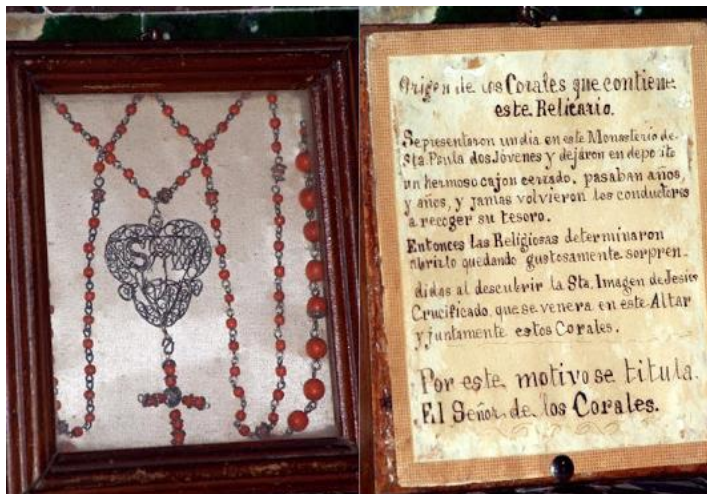 Origen de los Corales que contiene
este Relicario.
Se presentaron un dia en este Monasterio de
Sta. Paula dos Jovenes y dejaron en deposito
un hermoso cajon cerrado, pasaban años,
y años, y jamas volvieron los conductores
a recoger su tesoro.
Entonces las Religiosas determinaron
abrirlo quedando gustosamente sorpren-
didas al descubrir la Sta. Imagen de Jesús
Crucificado, que se venera en este Altar
y juntamente estos Corales.
Por este motivo se titula.
El Señor de los Corales.